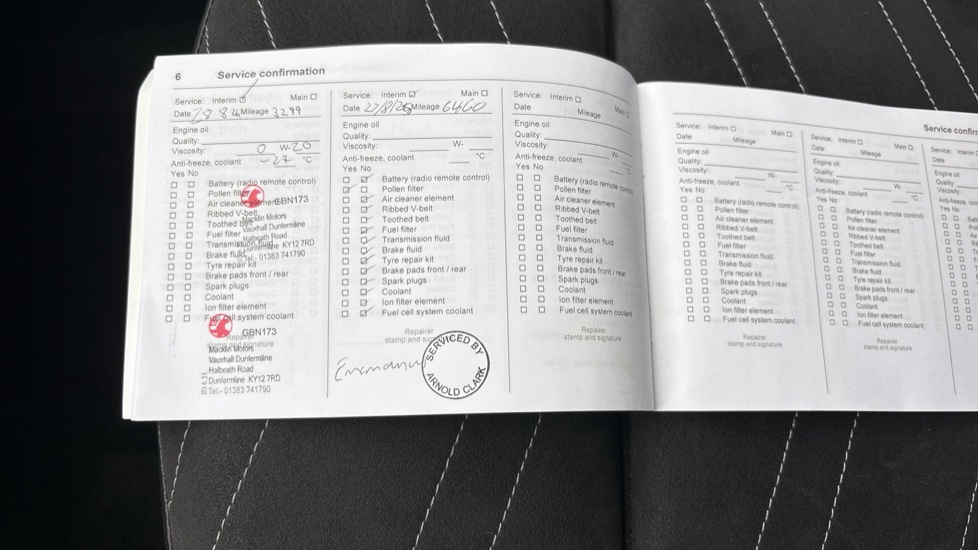 6 Service confirmation
Service: Interim Main
Date 28 8 Mileage 3299
Engine oil
Quality:
Viscosity: 0 W-20
Anti-freeze, coolant -27 °C
Yes No
Battery (radio remote control)
Pollen filter
Air cleaner element
Ribbed V-belt
Toothed belt
Fuel filter
Transmission fluid
Brake fluid
Tyre repair kit
Brake pads front / rear
Spark plugs
Coolant
Ion filter element
Fuel cell system coolant
GBN173
Macklin Motors
Vauxhall Dunfermline
Halbeath Road
Dunfermline KY12 7RD
Tel:- 01383 741790
Repairer
stamp and signature
GBN173
Macklin Motors
Vauxhall Dunfermline
Halbeath Road
Dunfermline KY12 7RD
Tel:- 01383 741790
Service: Interim Main
Date 27/8/25 Mileage 6460
Engine oil
Quality:
Viscosity: W-
Anti-freeze, coolant °C
Yes No
Battery (radio remote control)
Pollen filter
Air cleaner element
Ribbed V-belt
Toothed belt
Fuel filter
Transmission fluid
Brake fluid
Tyre repair kit
Brake pads front / rear
Spark plugs
Coolant
Ion filter element
Fuel cell system coolant
Repairer
stamp and
SERVICED BY
ARNOLD CLARK
Service: Interim Main
Date Mileage
Engine oil
Quality:
Viscosity: W-
Anti-freeze, coolant °C
Yes No
Battery (radio remote control)
Pollen filter
Air cleaner element
Ribbed V-belt
Toothed belt
Fuel filter
Transmission fluid
Brake fluid
Tyre repair kit
Brake pads front / rear
Spark plugs
Coolant
Ion filter element
Fuel cell system coolant
Repairer
stamp and signature
Service: Interim Main
Date Mileage
Engine oil
Quality:
Viscosity: W-
Anti-freeze, coolant °C
Yes No
Battery (radio remote control)
Pollen filter
Air cleaner element
Ribbed V-belt
Toothed belt
Fuel filter
Transmission fluid
Brake fluid
Tyre repair kit
Brake pads front / rear
Spark plugs
Coolant
Ion filter element
Fuel cell system coolant
Repairer
stamp and signature
Service confirm
Service: Interim Main
Date Mileage
Engine oil
Quality:
Viscosity: W-
Anti-freeze, coolant °C
Yes No
Battery (radio remote control)
Pollen filter
Air cleaner element
Ribbed V-belt
Toothed belt
Fuel filter
Transmission fluid
Brake fluid
Tyre repair kit
Brake pads front / rear
Spark plugs
Coolant
Ion filter element
Fuel cell system coolant
Repairer
stamp and signature
Service:
Date
Engine oil
Quality:
Yes No